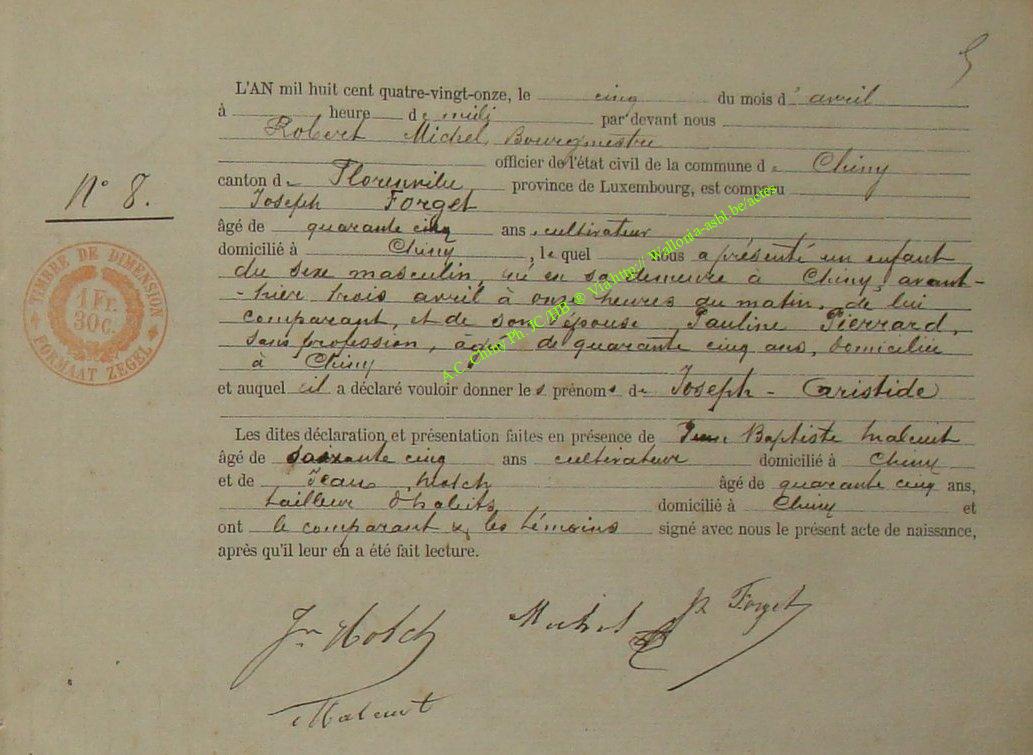 5
L'AN mil huit cent quatre-vingt-onze, le cinq du mois d'avril
à heure de midi par devant nous
Robert Michel, Bourgmestre
officier de l'état civil de la commune de Chiny
canton de Florenville, province de Luxembourg, est comparu
Joseph Forget
âgé de quarante cinq ans, cultivateur
domicilié à Chiny, lequel nous a présenté un enfant
du sexe masculin, né en sa demeure à Chiny, avant-
-hier trois avril à onze heures du matin, de lui
comparant, et de son épouse, Pauline Pierrard,
sans profession, âgée de quarante cinq ans, domiciliée
à Chiny
et auquel il a déclaré vouloir donner les prénoms de Joseph - Aristide
Les dites déclaration et présentation faites en présence de Jean Baptiste Maleut
âgé de soixante cinq ans cultivateur domicilié à Chiny
et de Jean Hotch âgé de quarante cinq ans,
tailleur d'habits, domicilié à Chiny et
ont le comparant & les témoins signé avec nous le présent acte de naissance,
après qu'il leur en a été fait lecture.
N° 8.
TIMBRE DE DIMENSION
1 Fr.
30 c.
FORMAAT ZEGEL
A.C. Chiny Ph. JC/HB ® Via http:// Wallonia-asbl.be/actes
Jn Hotch
Michel
Jh Forget
Maleut